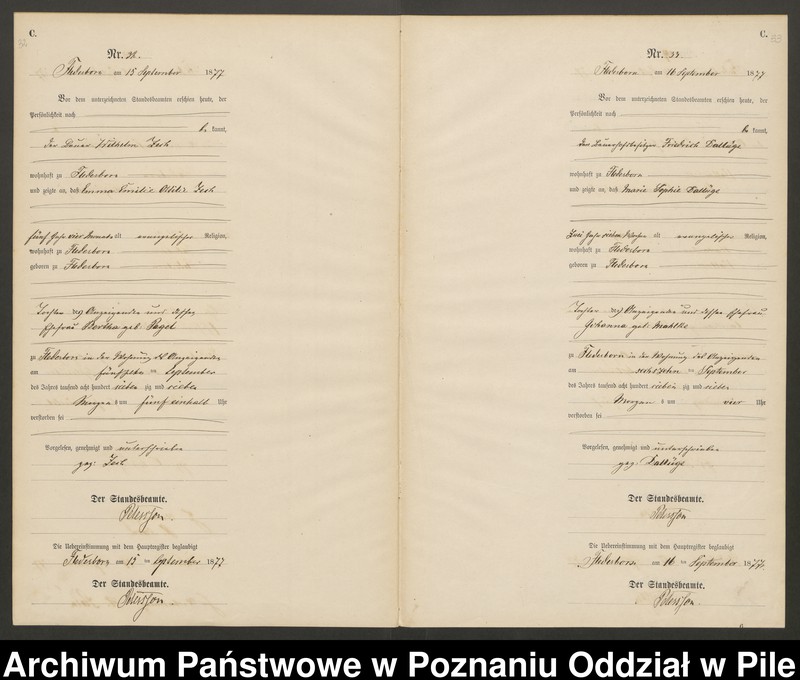 C.
Nr. 32.
Flederborn am 15 September 1877
Vor dem unterzeichneten Standesbeamten erschien heute, der
Persönlichkeit nach
be kannt,
der Bauer Wilhelm Zech
wohnhaft zu Flederborn
und zeigte an, daß Emma Emilie Ottilie Zech
fünf Jahr vier Monate alt evangelischer Religion,
wohnhaft zu Flederborn
geboren zu Flederborn
Tochter des Anzeigenden und dessen
Ehefrau Bertha geb. Pagel
zu Flederborn in der Wohnung des Anzeigenden
am fünfzehn ten September
des Jahres tausend acht hundert sieben zig und sieben
Morgens um fünf einhalb Uhr
verstorben sei
Vorgelesen, genehmigt und unterschrieben
gez. Zech
Der Standesbeamte.
Die Uebereinstimmung mit dem Hauptregister beglaubigt
Flederborn am 15 ten September 1877
Der Standesbeamte.
C.
33
Nr. 33
Flederborn am 16 September 1877
Vor dem unterzeichneten Standesbeamten erschien heute, der
Persönlichkeit nach
be kannt,
der Bauerhofsbesitzer Friedrich Dallüge
wohnhaft zu Flederborn
und zeigte an, daß Marie Sophie Dallüge
Zwei Jahr sieben Wochen alt evangelischer Religion,
wohnhaft zu Flederborn
geboren zu Flederborn
Tochter des Anzeigenden und dessen Ehefrau
Johanna geb. Mahlke
zu Flederborn in der Wohnung des Anzeigenden
am sechszehn ten September
des Jahres tausend acht hundert sieben zig und sieben
Morgens um vier Uhr
verstorben sei
Vorgelesen, genehmigt und unterschrieben
gez. Dallüge
Der Standesbeamte.
Die Uebereinstimmung mit dem Hauptregister beglaubigt
Flederborn am 16 ten September 1877.
Der Standesbeamte.
Archiwum Państwowe w Poznaniu Oddział w Pile